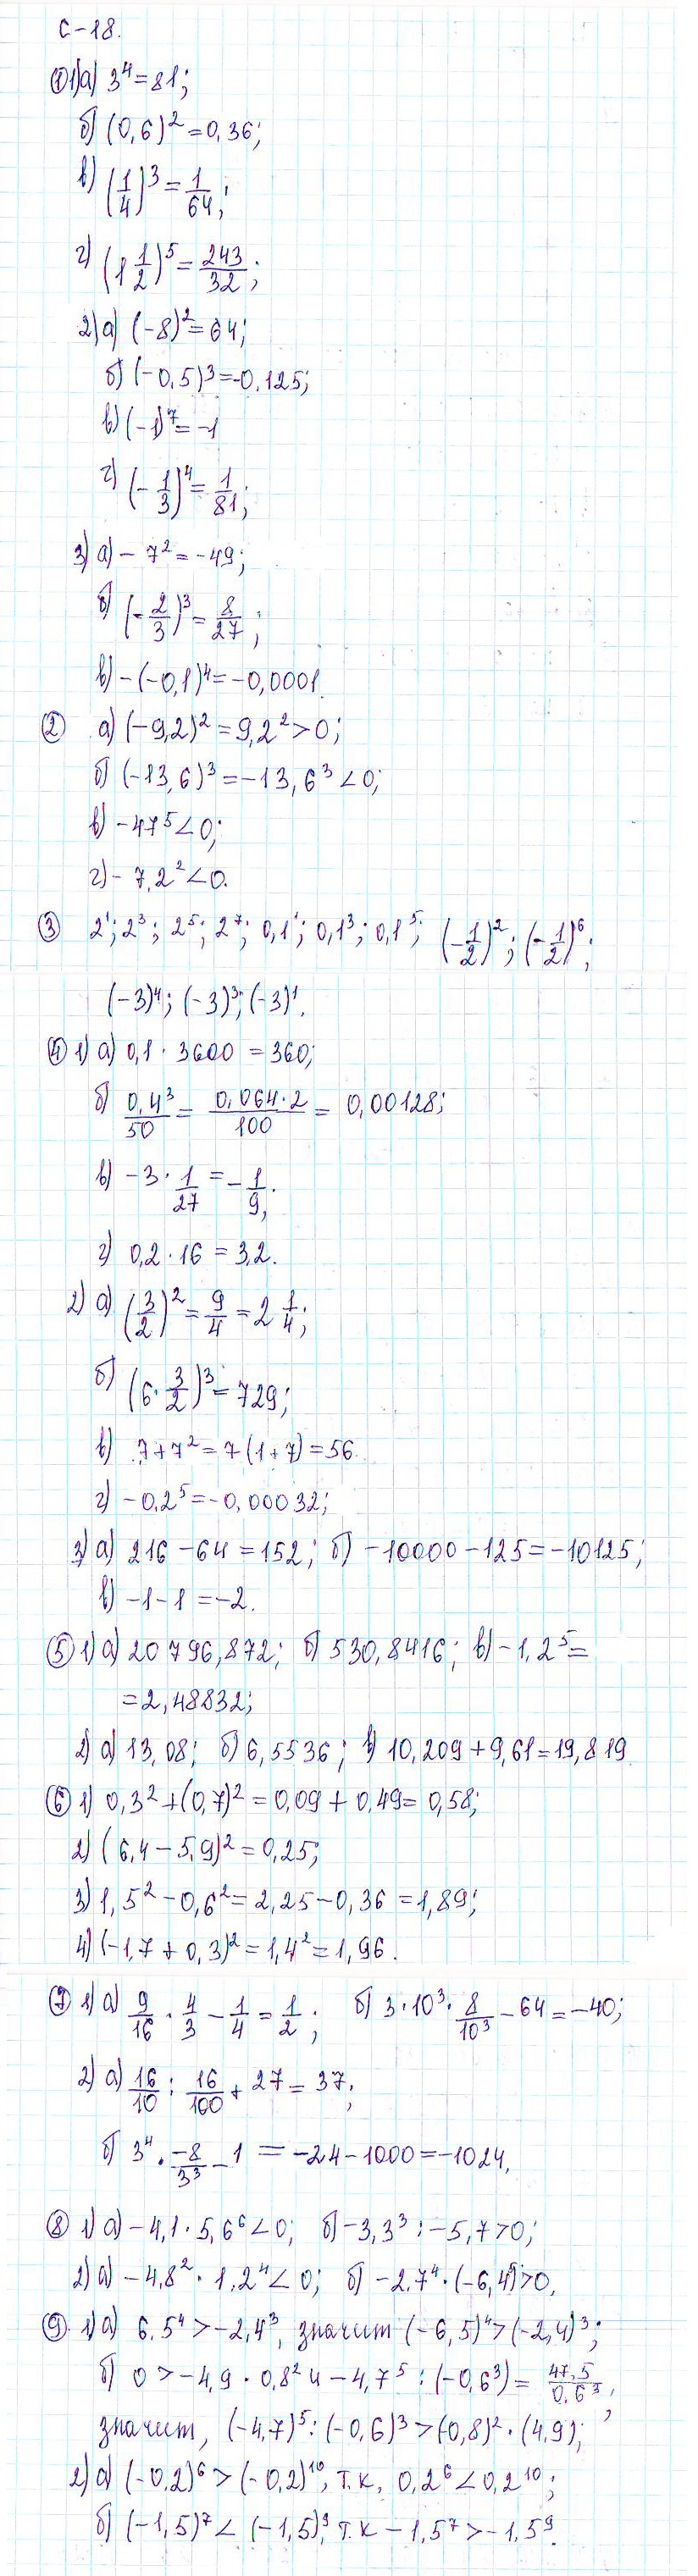 С-18.
① 1) а) 3⁴ = 81;
б) (0,6)² = 0,36;
в) (1/4)³ = 1/64;
г) (1 1/2)⁵ = 243/32;
2) а) (-8)² = 64;
б) (-0,5)³ = -0,125;
в) (-1)⁷ = -1
г) (-1/3)⁴ = 1/81;
3) а) - 7² = -49;
б) (-2/3)³ = 8/27;
в) -(-0,1)⁴ = -0,0001.
② а) (-9,2)² = 9,2² > 0;
б) (-13,6)³ = -13,6³ < 0;
в) -47⁵ < 0;
г) - 7,2² < 0.
③ 2¹; 2³; 2⁵; 2⁷; 0,1¹; 0,1³; 0,1⁵; (-1/2)²; (-1/2)⁶;
(-3)⁴; (-3)³; (-3)¹.
④ 1) а) 0,1 · 3600 = 360;
б) 0,4³/50 = 0,064·2/100 = 0,00128;
в) -3 · 1/27 = -1/9;
г) 0,2 · 16 = 3,2.
2) а) (3/2)² = 9/4 = 2 1/4;
б) (6 · 3/2)³ = 729;
в) 7 + 7² = 7(1+7) = 56
г) -0,2⁵ = -0,00032;
3) а) 216 - 64 = 152; б) -10000 - 125 = -10125;
в) -1 - 1 = -2.
⑤ 1) а) 20 796,872; б) 530,8416; в) -1,2⁵ =
= 2,48832;
2) а) 13,08; б) 6,5536; в) 10,209 + 9,61 = 19,819
⑥ 1) 0,3² + (0,7)² = 0,09 + 0,49 = 0,58;
2) (6,4 - 5,9)² = 0,25;
3) 1,5² - 0,6² = 2,25 - 0,36 = 1,89;
4) (-1,7 + 0,3)² = 1,4² = 1,96.
⑦ 1) а) 9/16 · 4/3 - 1/4 = 1/2; б) 3·10³ · 8/10³ - 64 = -40;
2) а) 16/10 : 16/100 + 27 = 37;
б) 3⁴ · -8/3³ - 1 = -24 - 1000 = -1024.
⑧ 1) а) -4,1 · 5,6⁶ < 0; б) -3,3³ : -5,7 > 0;
2) а) -4,8² · 1,2⁴ < 0; б) -2,7⁴ · (-6,4)⁵ > 0.
⑨ 1) а) 6,5⁴ > -2,4³, значит (-6,5)⁴ > (-2,4)³;
б) 0 > -4,9 · 0,8² и -4,7⁵ : (-0,6³) = 47,5/0,6³;
значит, (-4,7)⁵ : (-0,6)³ > (-0,8)² · (4,9);
2) а) (-0,2)⁶ > (-0,2)¹⁰, т.к. 0,2⁶ < 0,2¹⁰;
б) (-1,5)⁷ < (-1,5)⁹, т.к -1,5⁷ > -1,5⁹.